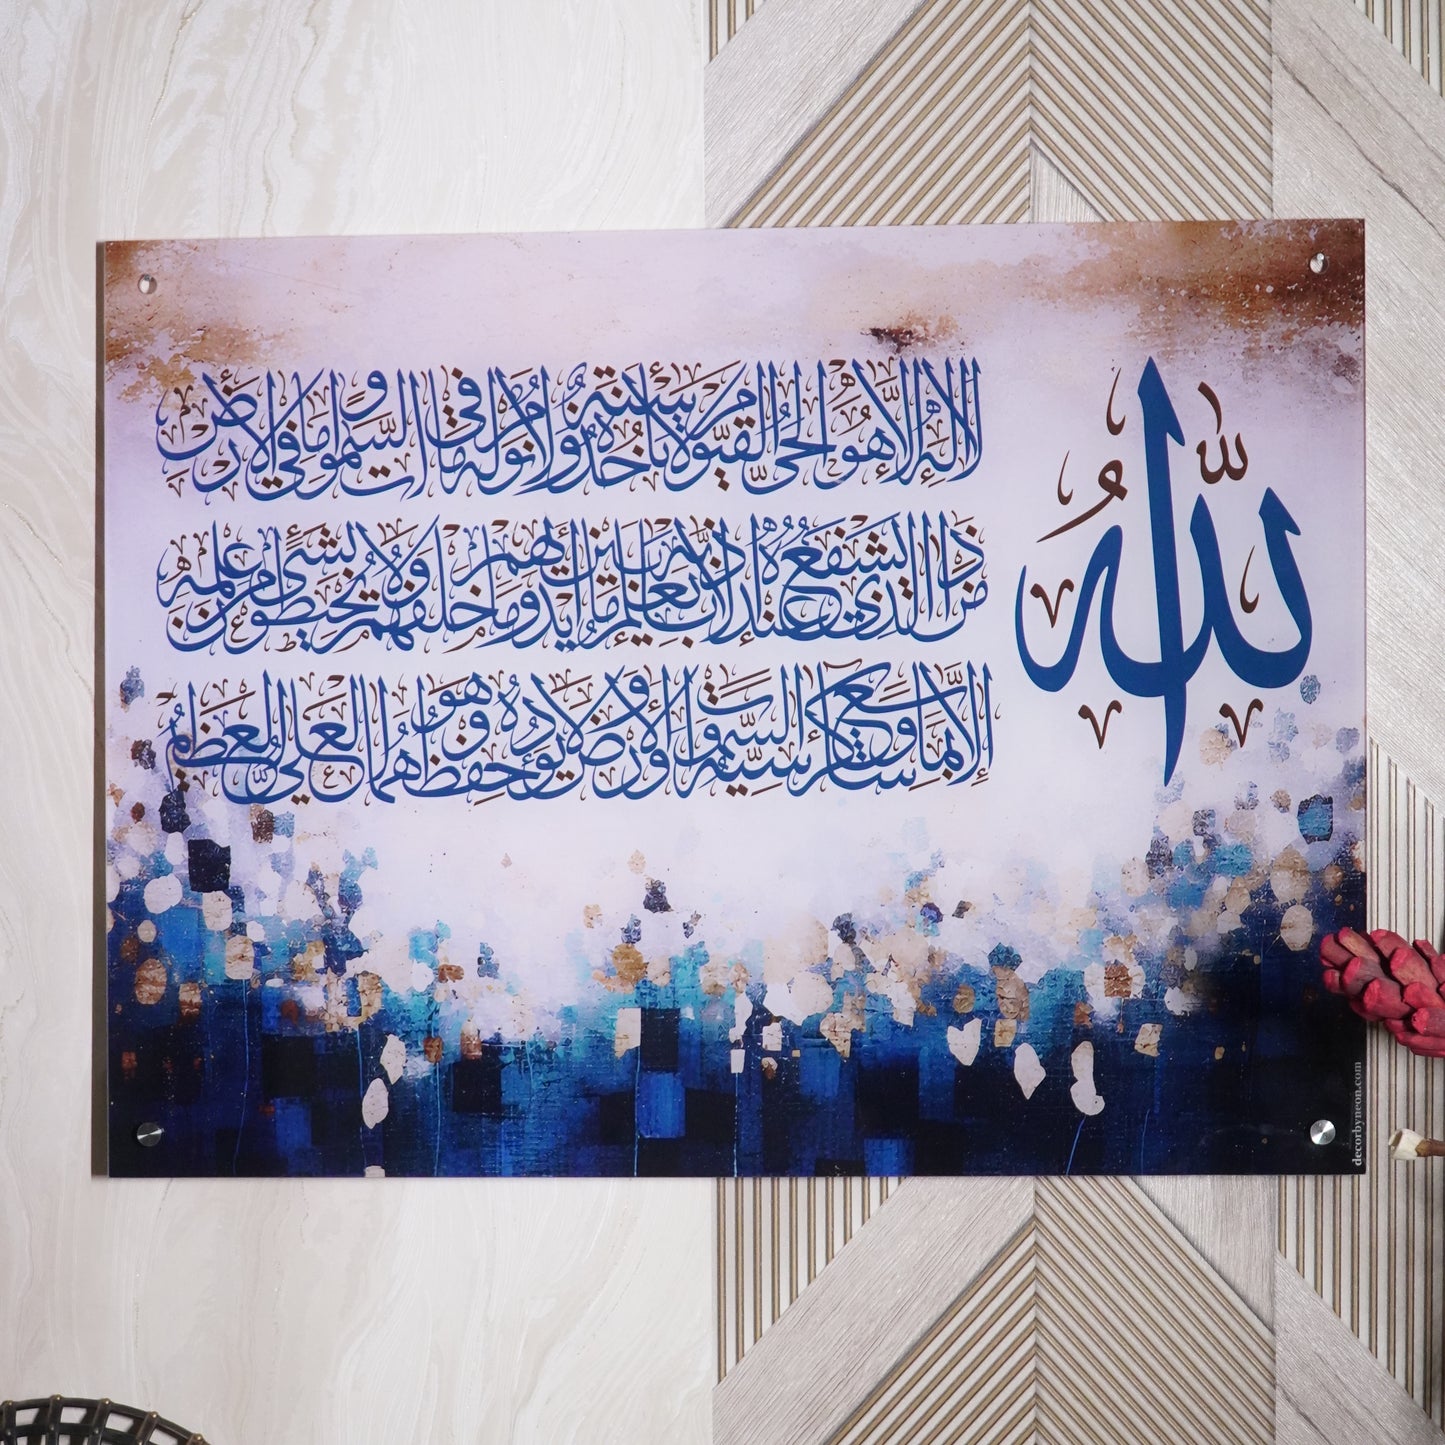 اللهُ
لا إله إلا هو الحي القيوم لا تأخذه سنة ولا نوم له ما في السموات وما في الأرض
من ذا الذي يشفع عنده إلا بإذنه يعلم ما بين أيديهم وما خلفهم ولا يحيطون بشيء من علمه
إلا بما شاء وسع كرسيه السموات والأرض ولا يؤده حفظهما وهو العلي العظيم
decorbyneon.com